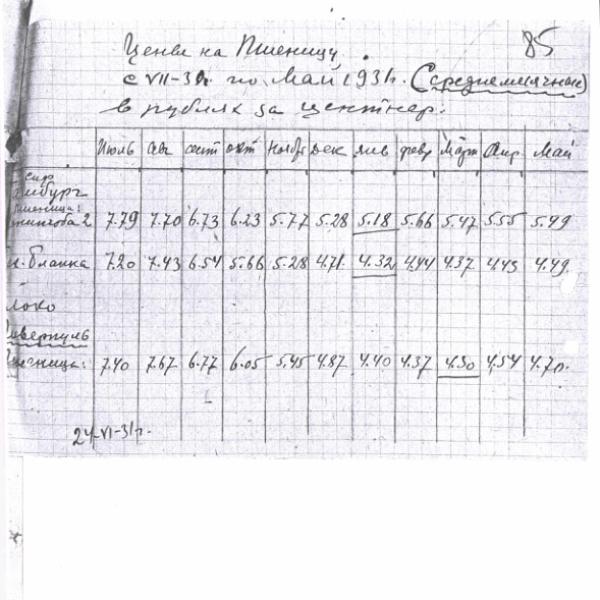 85
Цены на Пшеницу
с VII-30г. по Май 1931г. (Среднемесячные)
в рублях за центнер.
Июль Авг сент окт Ноябр дек янв февр Март Апр Май
сиф
мбург
Пшеница:
нитоба 2 7.79 7.70 6.73 6.23 5.77 5.28 5.18 5.66 5.47 5.55 5.49
н. бланка 7.20 7.43 6.54 5.66 5.28 4.71 4.32 4.44 4.37 4.45 4.49
локо
иверпуль
шеница: 7.40 7.67 6.77 6.05 5.45 4.87 4.40 4.37 4.30 4.54 4.70
24-VI-31г.